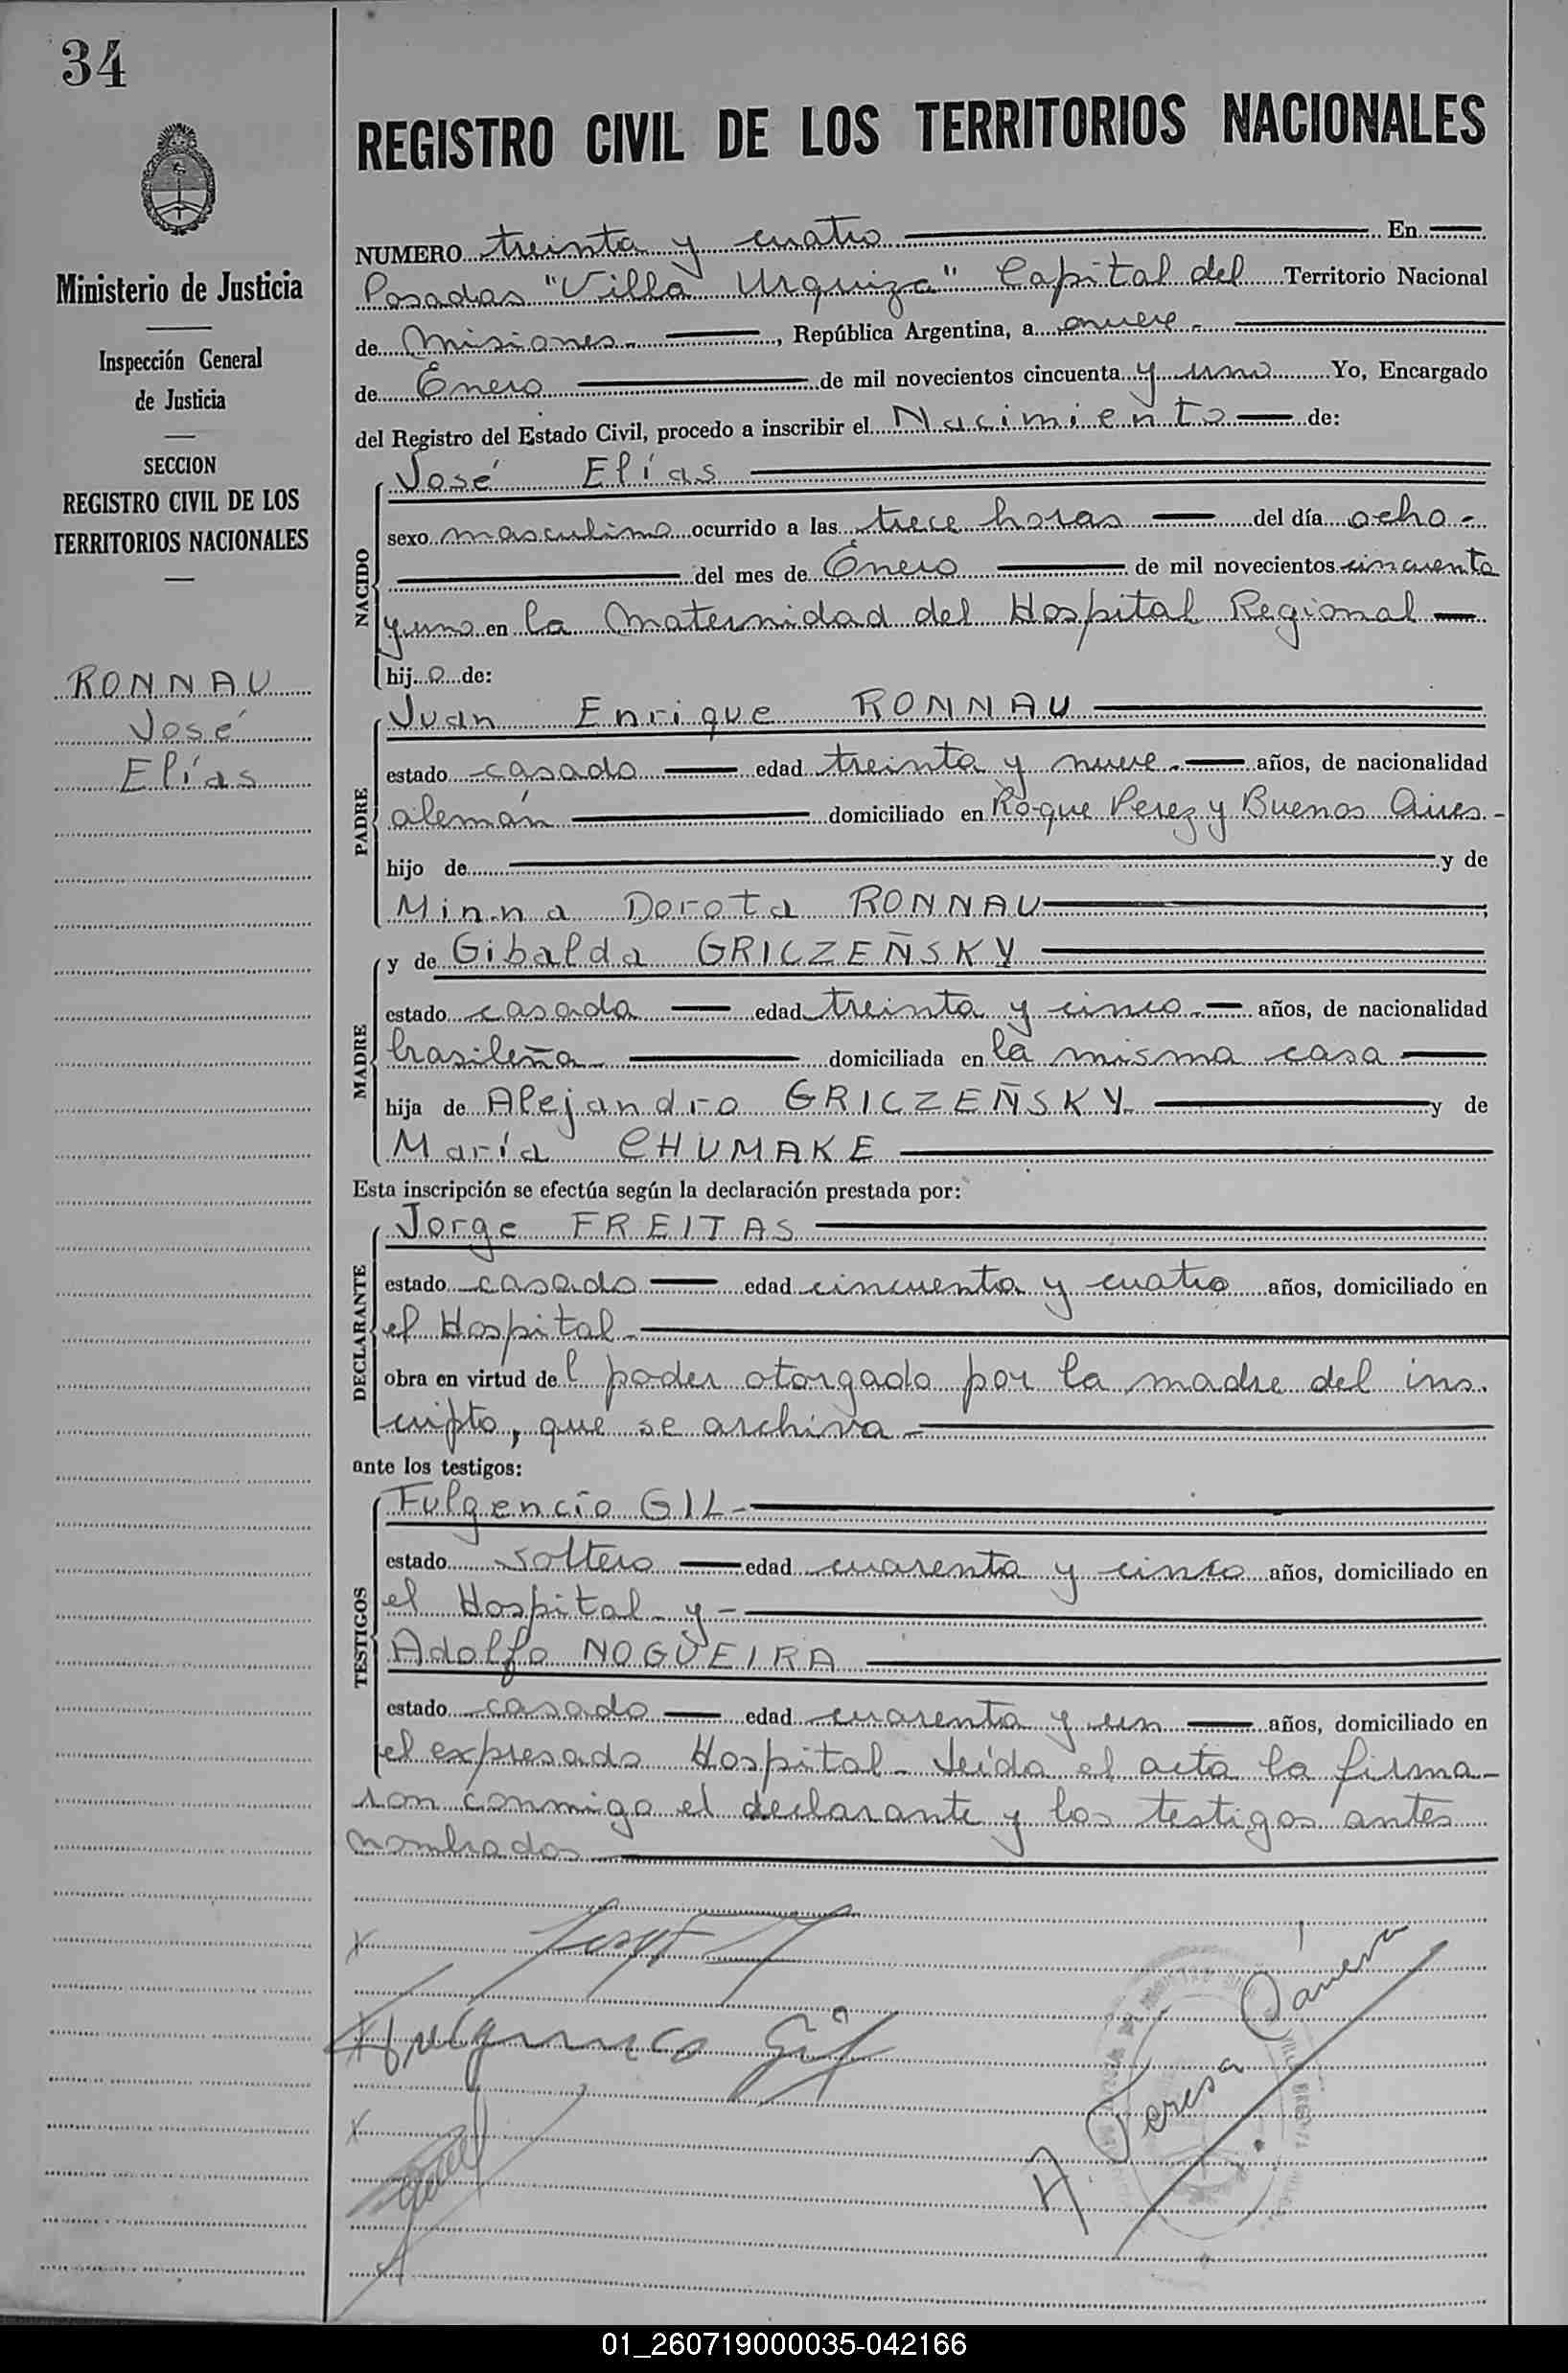 34
Ministerio de Justicia
Inspección General
de Justicia
SECCION
REGISTRO CIVIL DE LOS
TERRITORIOS NACIONALES
RONNAU
José
Elías
REGISTRO CIVIL DE LOS TERRITORIOS NACIONALES
NUMERO treinta y cuatro En
Posadas "Villa Urquiza" Capital del Territorio Nacional
de Misiones, República Argentina, a nueve
de Enero de mil novecientos cincuenta y uno Yo, Encargado
del Registro del Estado Civil, procedo a inscribir el Nacimiento de:
NACIDO
José Elías
sexo masculino ocurrido a las trece horas del día ocho
del mes de Enero de mil novecientos cincuenta
y uno en la Maternidad del Hospital Regional
hijo de:
PADRE
Juan Enrique RONNAU
estado casado edad treinta y nueve años, de nacionalidad
alemán domiciliado en Roque Perez y Buenos Aires
hijo de y de
Minna Dorota RONNAU
MADRE
y de Gibalda GRICZEÑSKY
estado casada edad treinta y cinco años, de nacionalidad
brasileña domiciliada en la misma casa
hija de Alejandro GRICZEÑSKY y de
María CHUMAKE
Esta inscripción se efectúa según la declaración prestada por:
DECLARANTE
Jorge FREITAS
estado casado edad cincuenta y cuatro años, domiciliado en
el Hospital
obra en virtud del poder otorgado por la madre del ins
cripto, que se archiva
ante los testigos:
TESTIGOS
Fulgencio GIL
estado soltero edad cuarenta y cinco años, domiciliado en
el Hospital y
Adolfo NOGUEIRA
estado casado edad cuarenta y un años, domiciliado en
el expresado Hospital. Leída el acta la firma-
ron conmigo el declarante y los testigos antes
nombrados
Fulgencio Gil
H. Teresa
01_260719000035-042166